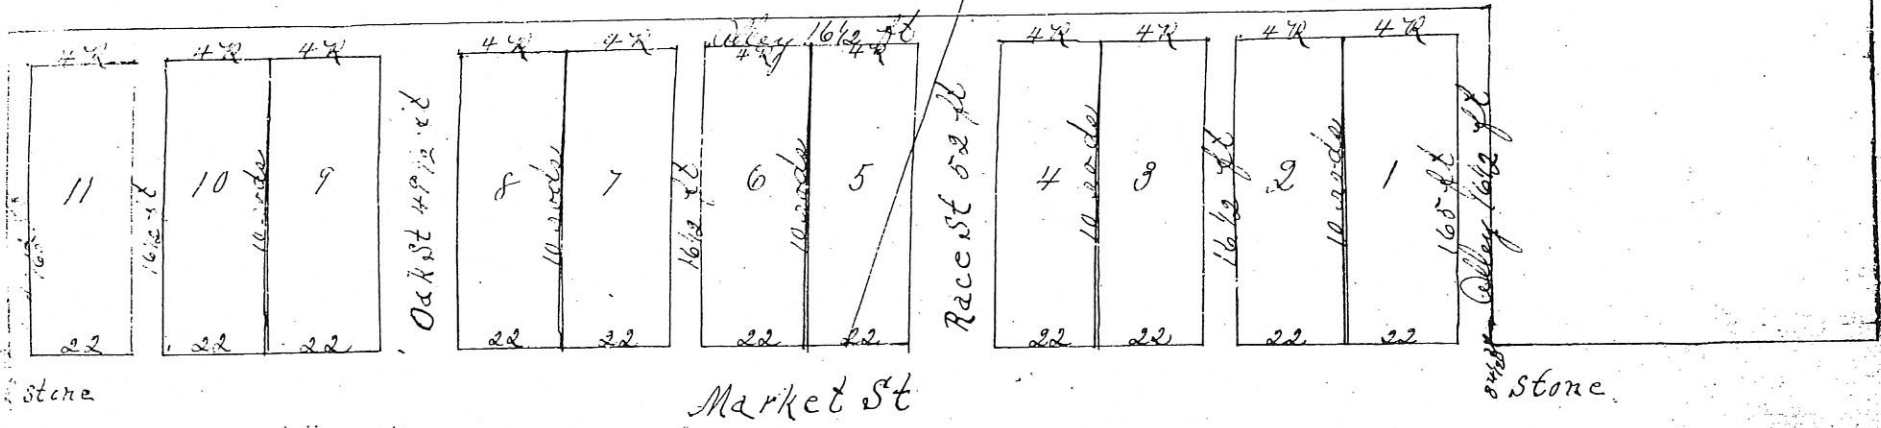 4R 4R 4R 4R 4R Alley 16 1/2 ft 4R 4R 4R 4R
4R 4R
11 16 1/2 ft 10 10 rods 9 Oak St 49 1/2 ft 8 10 rods 7 16 1/2 ft 6 10 rods 5 Race St 52 ft 4 10 rods 3 16 1/2 ft 2 10 rods 1 165 ft Alley 16 1/2 ft
165
22 22 22 22 22 22 22 22 22 22 22
Stone Market St Stone